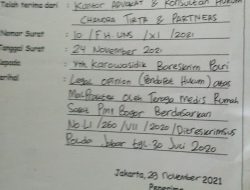 Telah terima dari : Kantor ADVOKAT & Konsultan Hukum
CHANDRA TIRTA & PARTNERS
Nomor Surat : 10 / F.H. UNS / XI / 2021
Tanggal Surat : 24 November 2021
Kepada : Yth Karowasidik Bareskrim Polri
Perihal : Legal opinion (Pendapat Hukum) atas
MalPraktek oleh Tenaga Medis Rumah
Sakit PMI Bogor Berdasarkan
No LI / 260 / VII / 2020 / Ditreskrimsus
Polda Jabar tgl 30 Juli 2020
Jakarta, 23 November 2021
Penerima